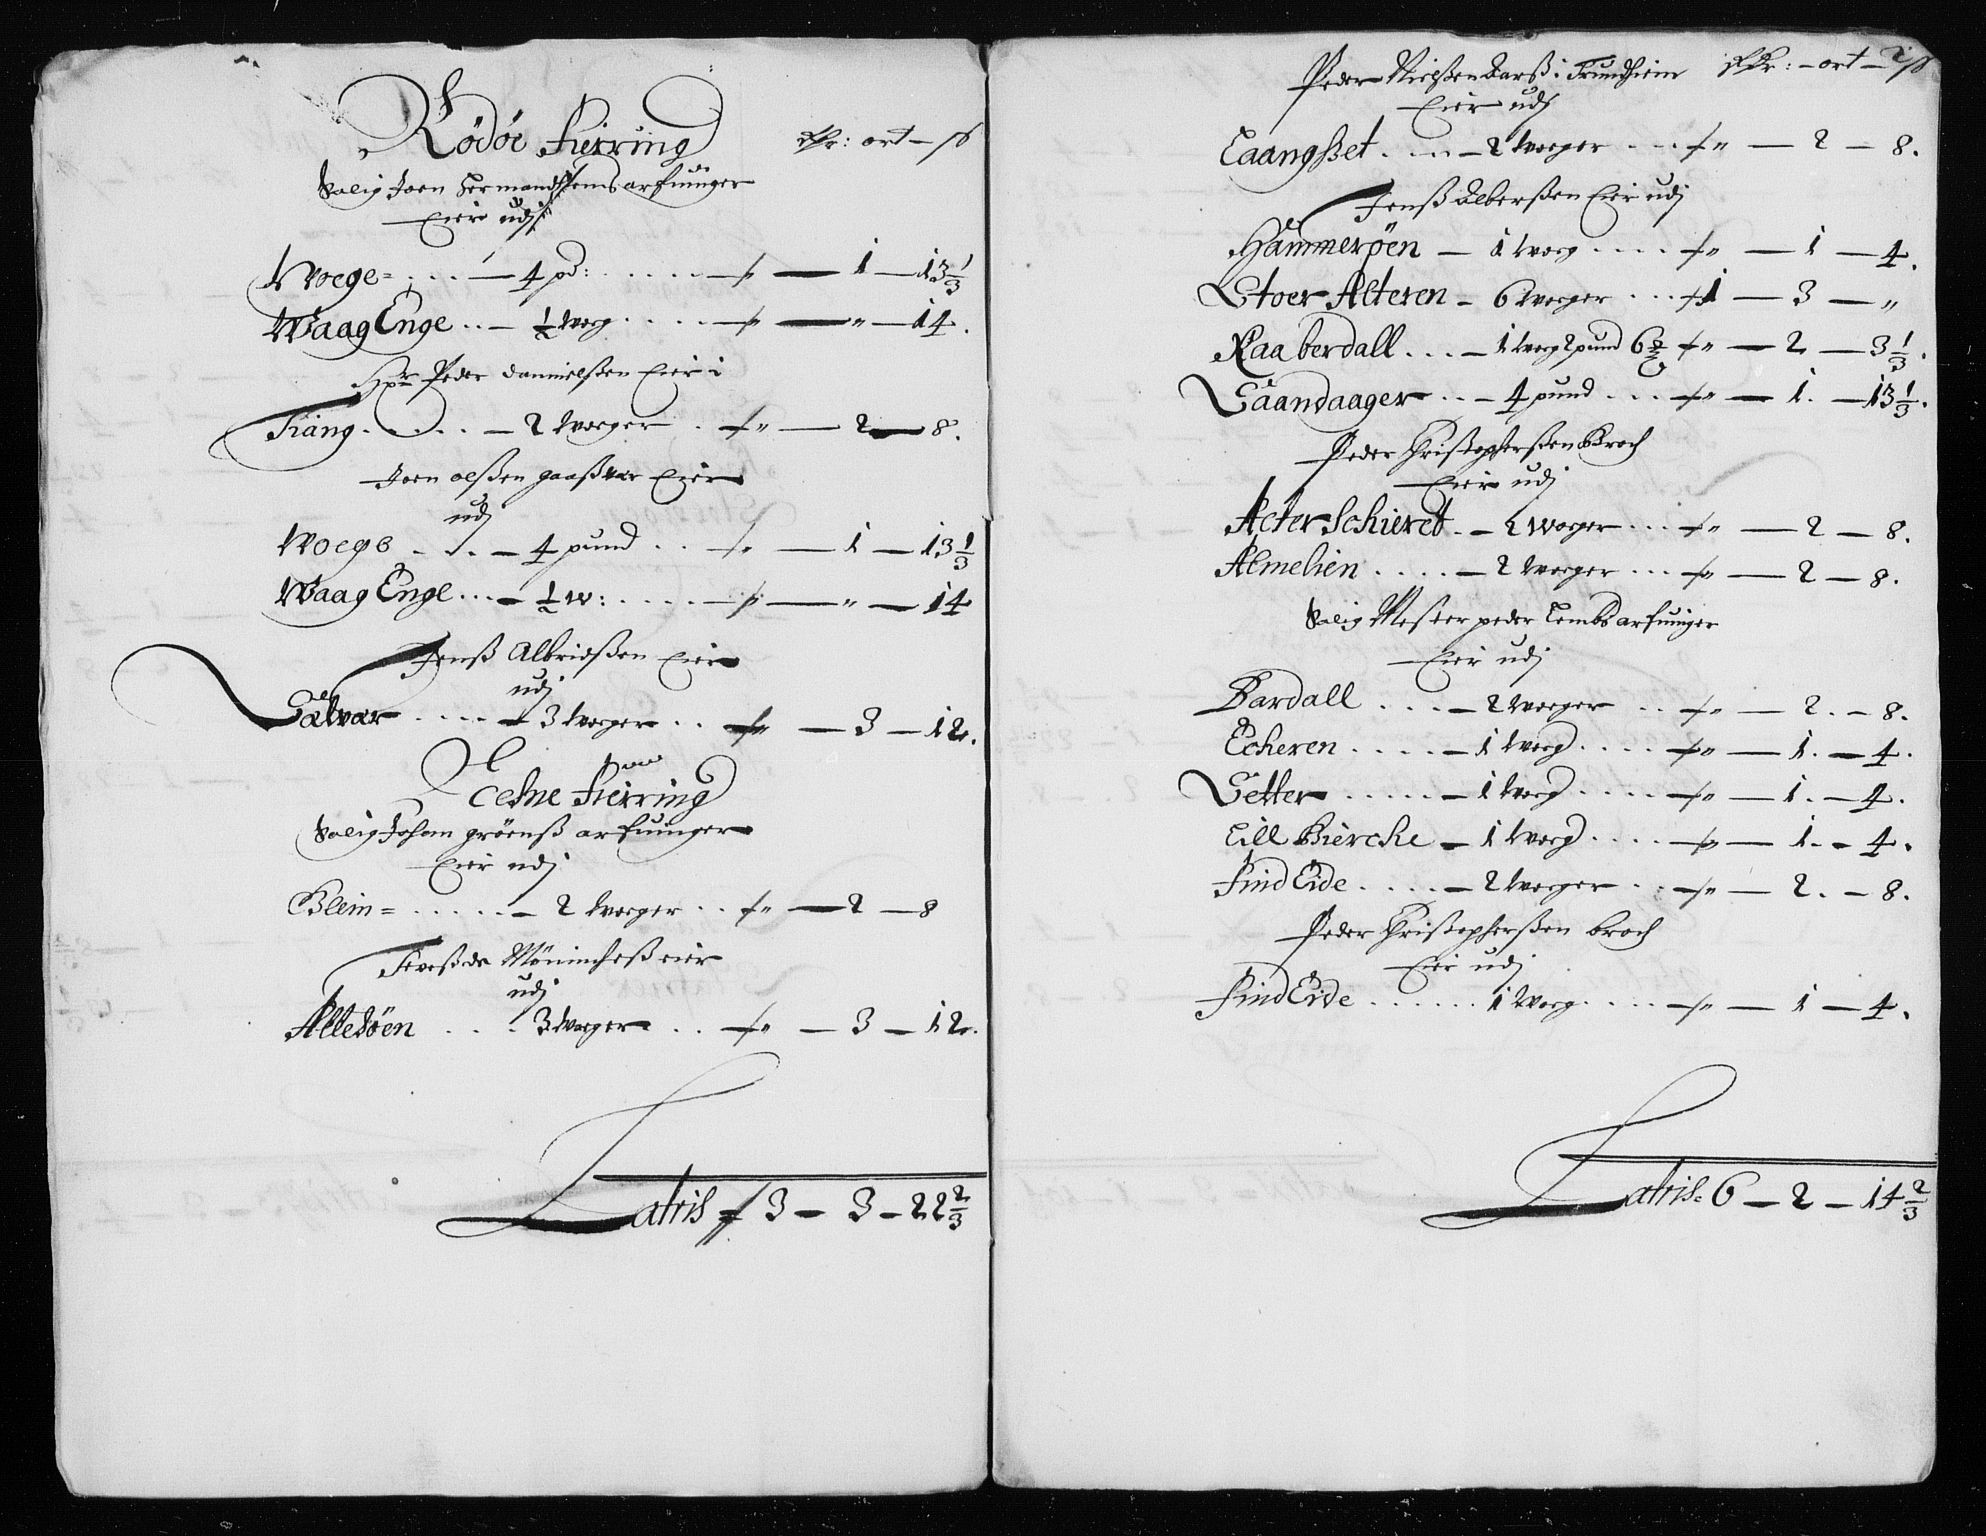 Rödöe Fierring Rdr: ort – ß
Salig Joen Hermandsens arfuinger
Eier udj
Woege = . . . – 4 pd: . . . . . – „ — 1 — 13 1/3
Waag Enge . . – 1/2 Woeg . . . . – „ — „ — 14.
Hr Peder Dannielßen Eier i
Tiäng . . . . . – 2 Woeger . – „ — 2 — 8.
Joen olßen gaaßvar Eier
udj
Woege . . . – 4 pund . . – „ — 1 — 13 1/3
Waag Enge . . . – 1/2 W: . . . . . – „ — „ — 14
Jenß Albridßen Eier
udj
Sälvar . . . . – 3 Woeger . . – „ — 3 — 12.
Nesne Fierring
Salig Johan gröenß arfuinger
Eier udj
Blein = . . . . . – 2 Woeger . . – „ — 2 — 8
Joeß de Möninches eier
udj
Altesöen . . . 3 Woeger . . – „ — 3 — 12.
Latris – 3 – 3 – 22 2/3
Peder Nielßen i Trundhiem Rdr: – ort – ß
Eier udj
Laangßet . . . – 2 Woeger . . . – „ — 2 — 8.
Jenß Alberßen Eier udj
Hammeröen — 1 Woeg . . . . – „ — 1 — 4.
Stoer Alteren – 6 Woeger . . . – 1 — 3 — „
Raaberdall . . . – 1 Woeg 2 pund 6 – „ — 2 — 3 1/3.
Saandaager . . . – 4 pund . . . . – „ — 1. — 13 1/3.
Peder Christophersßen Broch
Eier udj
Acter Schieret . – 2 Woeger . . . – „ — 2 — 8.
Almelien . . . . – 2 Woeger . . . – „ — 2 — 8.
Salig Mester peder Lembs arfuinger
Eier udj
Bardall . . . – 2 Woeger . . – „ — 2. – 8.
Echeren . . . . . – 1 Woeg . . . . – „ — 1. – 4.
Setter . . . . . – 1 Woeg . . . . – „ — 1. – 4.
Lill Biercke – 1 Woeg . . . . – „ — 1. – 4.
Find Eide . . . . – 2 Woeger . . – „ — 2. – 8.
Peder Christophersßen broch
Eier udj
Find Eide . . . . . . 1 Woeg . . . . – „ — 1 — 4.
Latris. 6 – 2 – 14 2/3